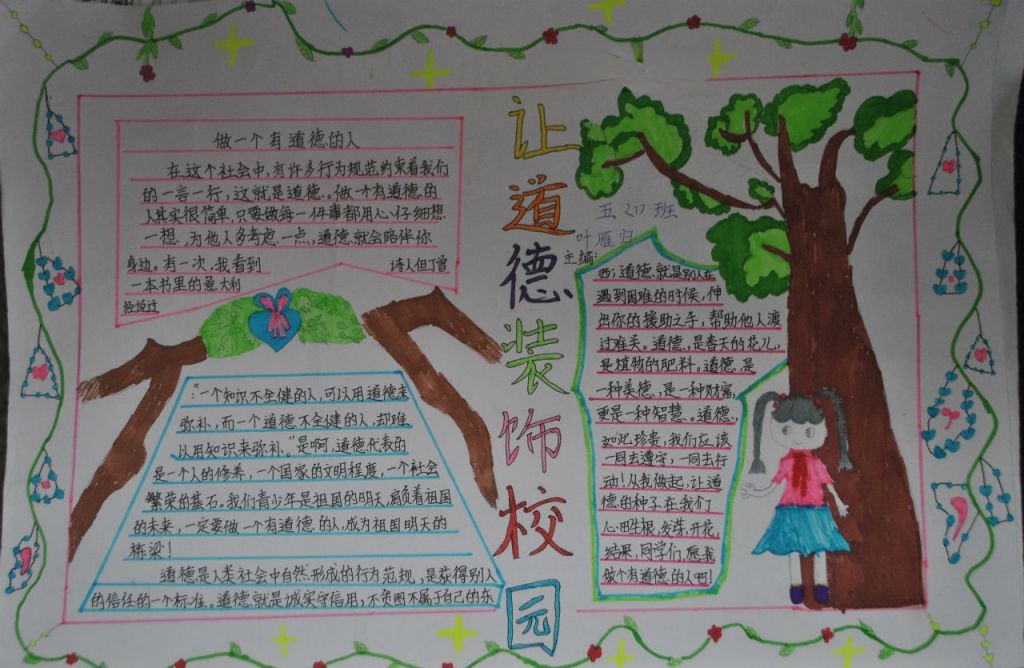 做一个有道德的人
在这个社会中,有许多行为规范约束着我们
的一言一行,这就是道德。做个有道德的
人其实很简单,只要做每一件事都用心仔细想
一想,为他人多考虑一点,道德就会陪伴你
身边。有一次,我看到
诗人但丁曾
一本书里的意大利
经说过
"一个知识不全健的人,可以用道德来
弥补,而一个道德不全健的人,却难
以用知识来弥补。"是啊,道德代表的
是一个人的修养,一个国家的文明程度,一个社会
繁荣的基石。我们青少年是祖国的明天,肩负着祖国
的未来,一定要做一个有道德的人,成为祖国明天的
栋梁!
道德是人类社会中自然形成的行为范规,是获得别人
的信任的一个标准。道德就是诚实守信用,不贪图不属于自己的东
让道德装饰校园
五〈1〉班
叶雁归
主编:
西;道德就是别人在
遇到困难的时候,伸
出你的援助之手,帮助他人渡
过难关。道德,是春天的花儿,
是植物的肥料。道德,是
一种美德,是一种财富,
更是一种智慧。道德,
如此珍贵,我们应该
一同去遵守,一同去行
动!从我做起,让道
德的种子在我们
心田生根,发芽,开花,
结果,同学们,愿我
做个有道德的人吧!